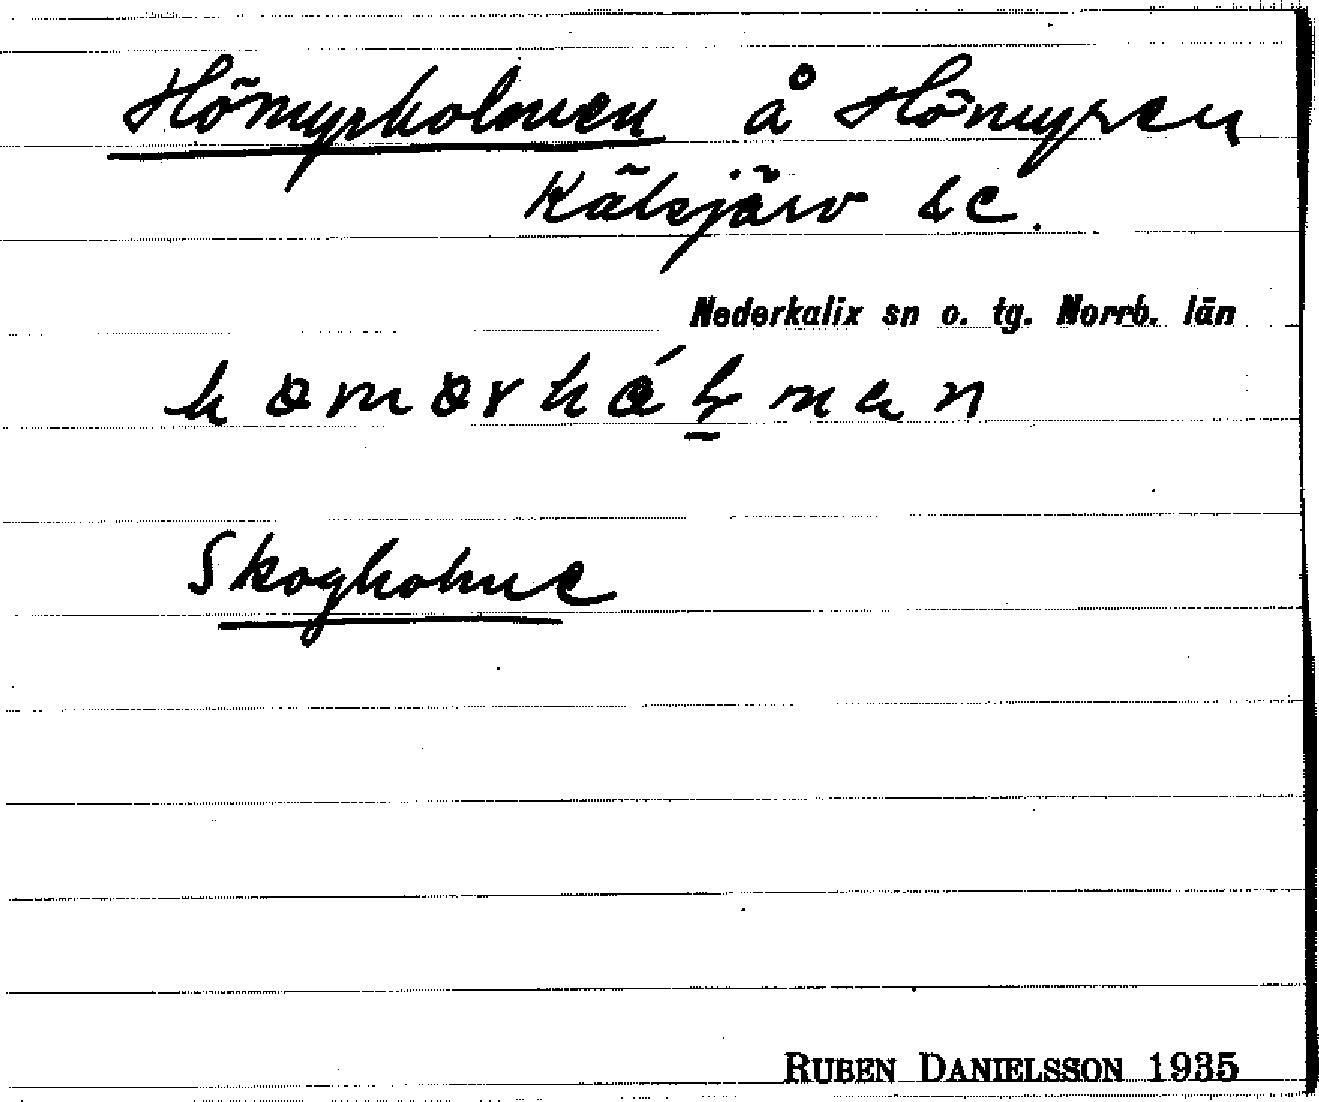 Hömyrholmen å Hömyren
Kälsjärv &c.
Nederkalix sn o. tg. Norrb. län
Skogholme
RUBEN DANIELSSON 1935